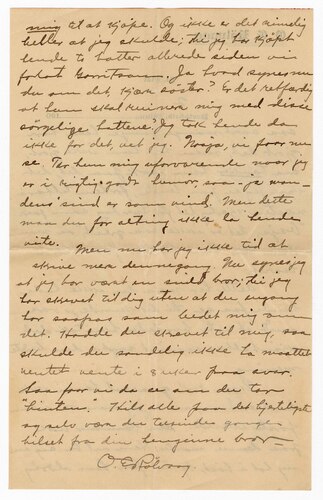 mig til at kjøpe. Og ikke er det rimelig
heller at jeg skulde; thi jeg har kjøpt
hende to hatter allerede siden vi
forlot Garretson. Ja hvad synes nu
du om det, kjære søster? Er det retfærdig
at hun skal ruinere mig med disse
sørgelige hattene? Jeg tok hende dog
ikke for det, vet jeg. Naaja, vi faar nu
se. Tar hun mig uforvarende naar jeg
er i rigtig godt humør, saa - ja man-
dens sind er som vind. Men dette
maa du for alting ikke la hende
vite.
Men nu har jeg ikke tid at
skrive mer dennegang. Nu synes jeg
at jeg har vært en snild bror; thi jeg
har skrevet til dig uten at du engang
har saapas som bedet mig om
det. Hadde du skrevet til mig, saa
skulde du sandelig ikke ha maattet
vente i 8 uker paa svar.
Saa faar vi da se om du tar
"hinten". Hils alle paa det hjerteligste
og selv være du tusinde ganger
hilset fra din hengivne bror
O. E. Rölvaag